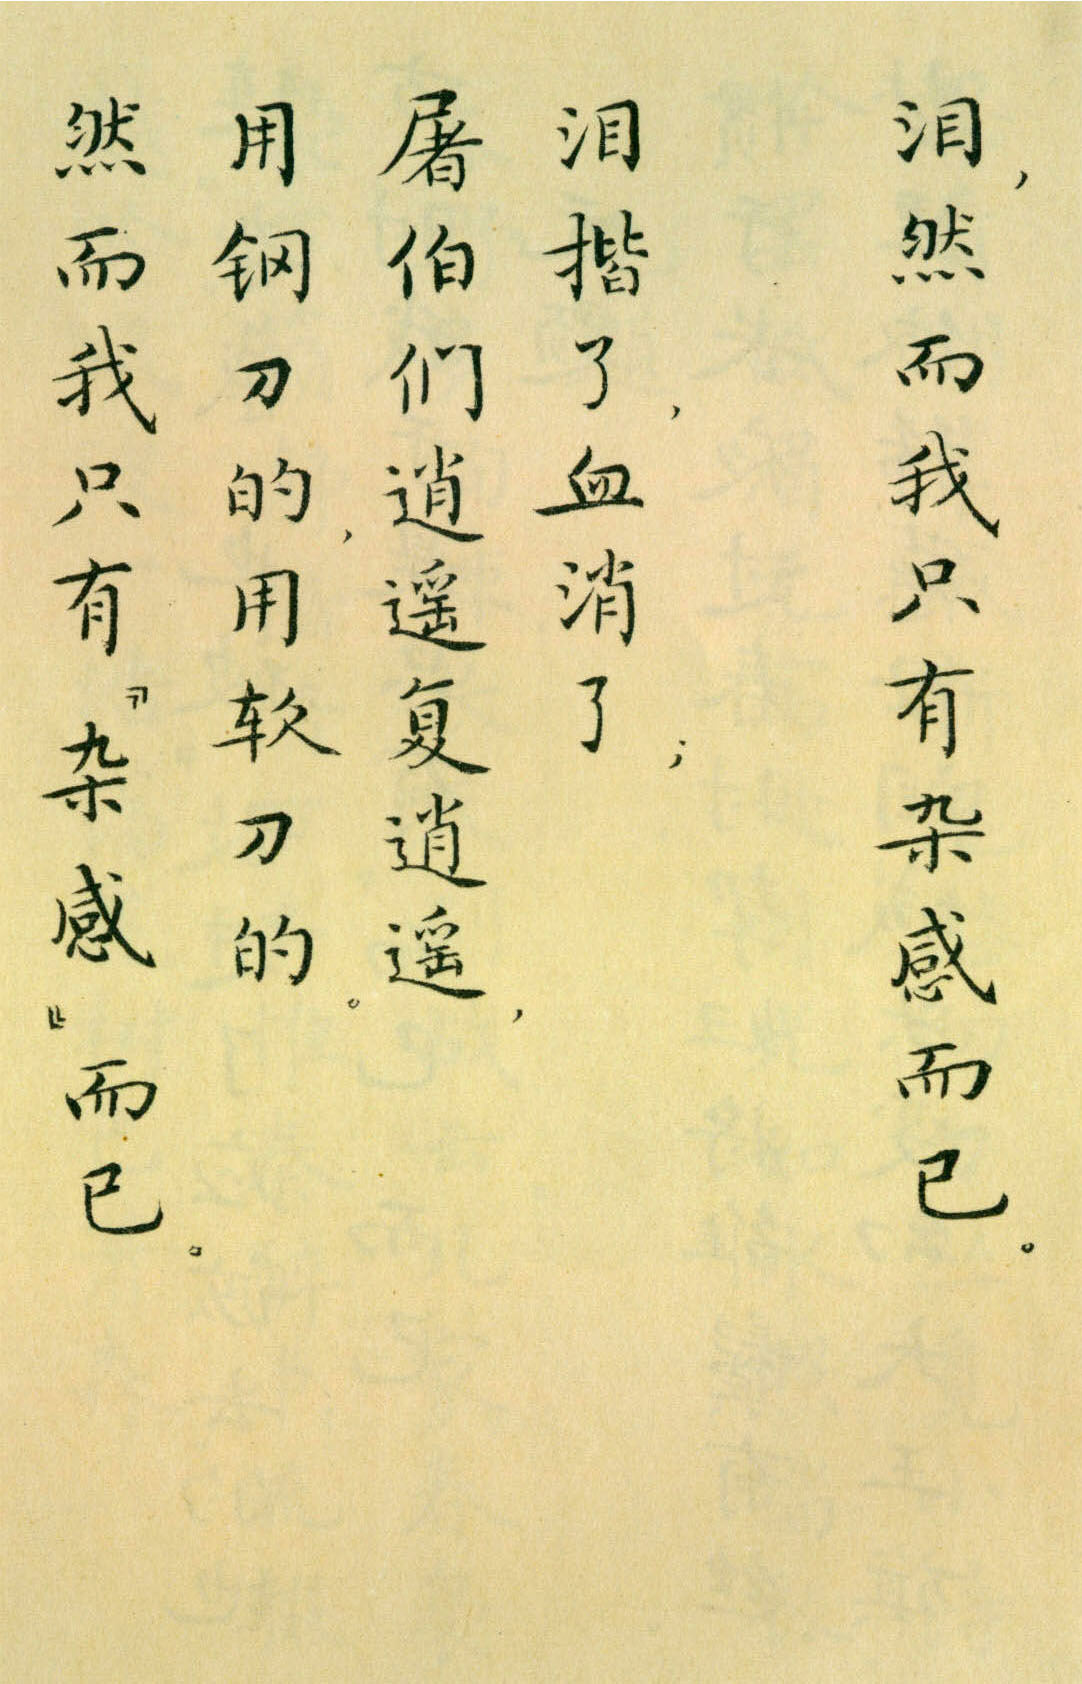 泪，然而我只有杂感而已。
泪揩了，血消了；
屠伯们逍遥复逍遥，
用钢刀的，用软刀的。
然而我只有『杂感』而已。